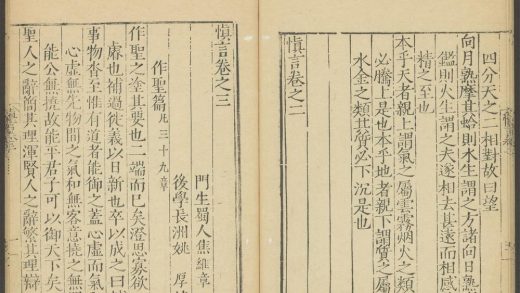 四分天之二相對故曰望
向月熟摩其蛤則水生謂之方諸向日熟
鑑則火生謂之夫遂相去甚遠而相感
精之至也
本乎天者親上謂氣之屬雲霧烟火之類
必騰上是也本乎地者親下謂質之屬
水金之類其質必下沉是也
慎言卷之二
慎言卷之三
門生蜀人焦維章
後學長洲姚厚
作聖篇凡三十九章
作聖之塗其要也二端而已矣澄思寡欲
慮也補過徙義以日新也卒以成之曰
事物沓至惟有道者能御之蓋心虛而氣
心虛無先物閡之氣和無客意撓之無
能公無撓故能平君子可以御天下矣
聖人之辭簡其理渾賢人之辭繁其理辯